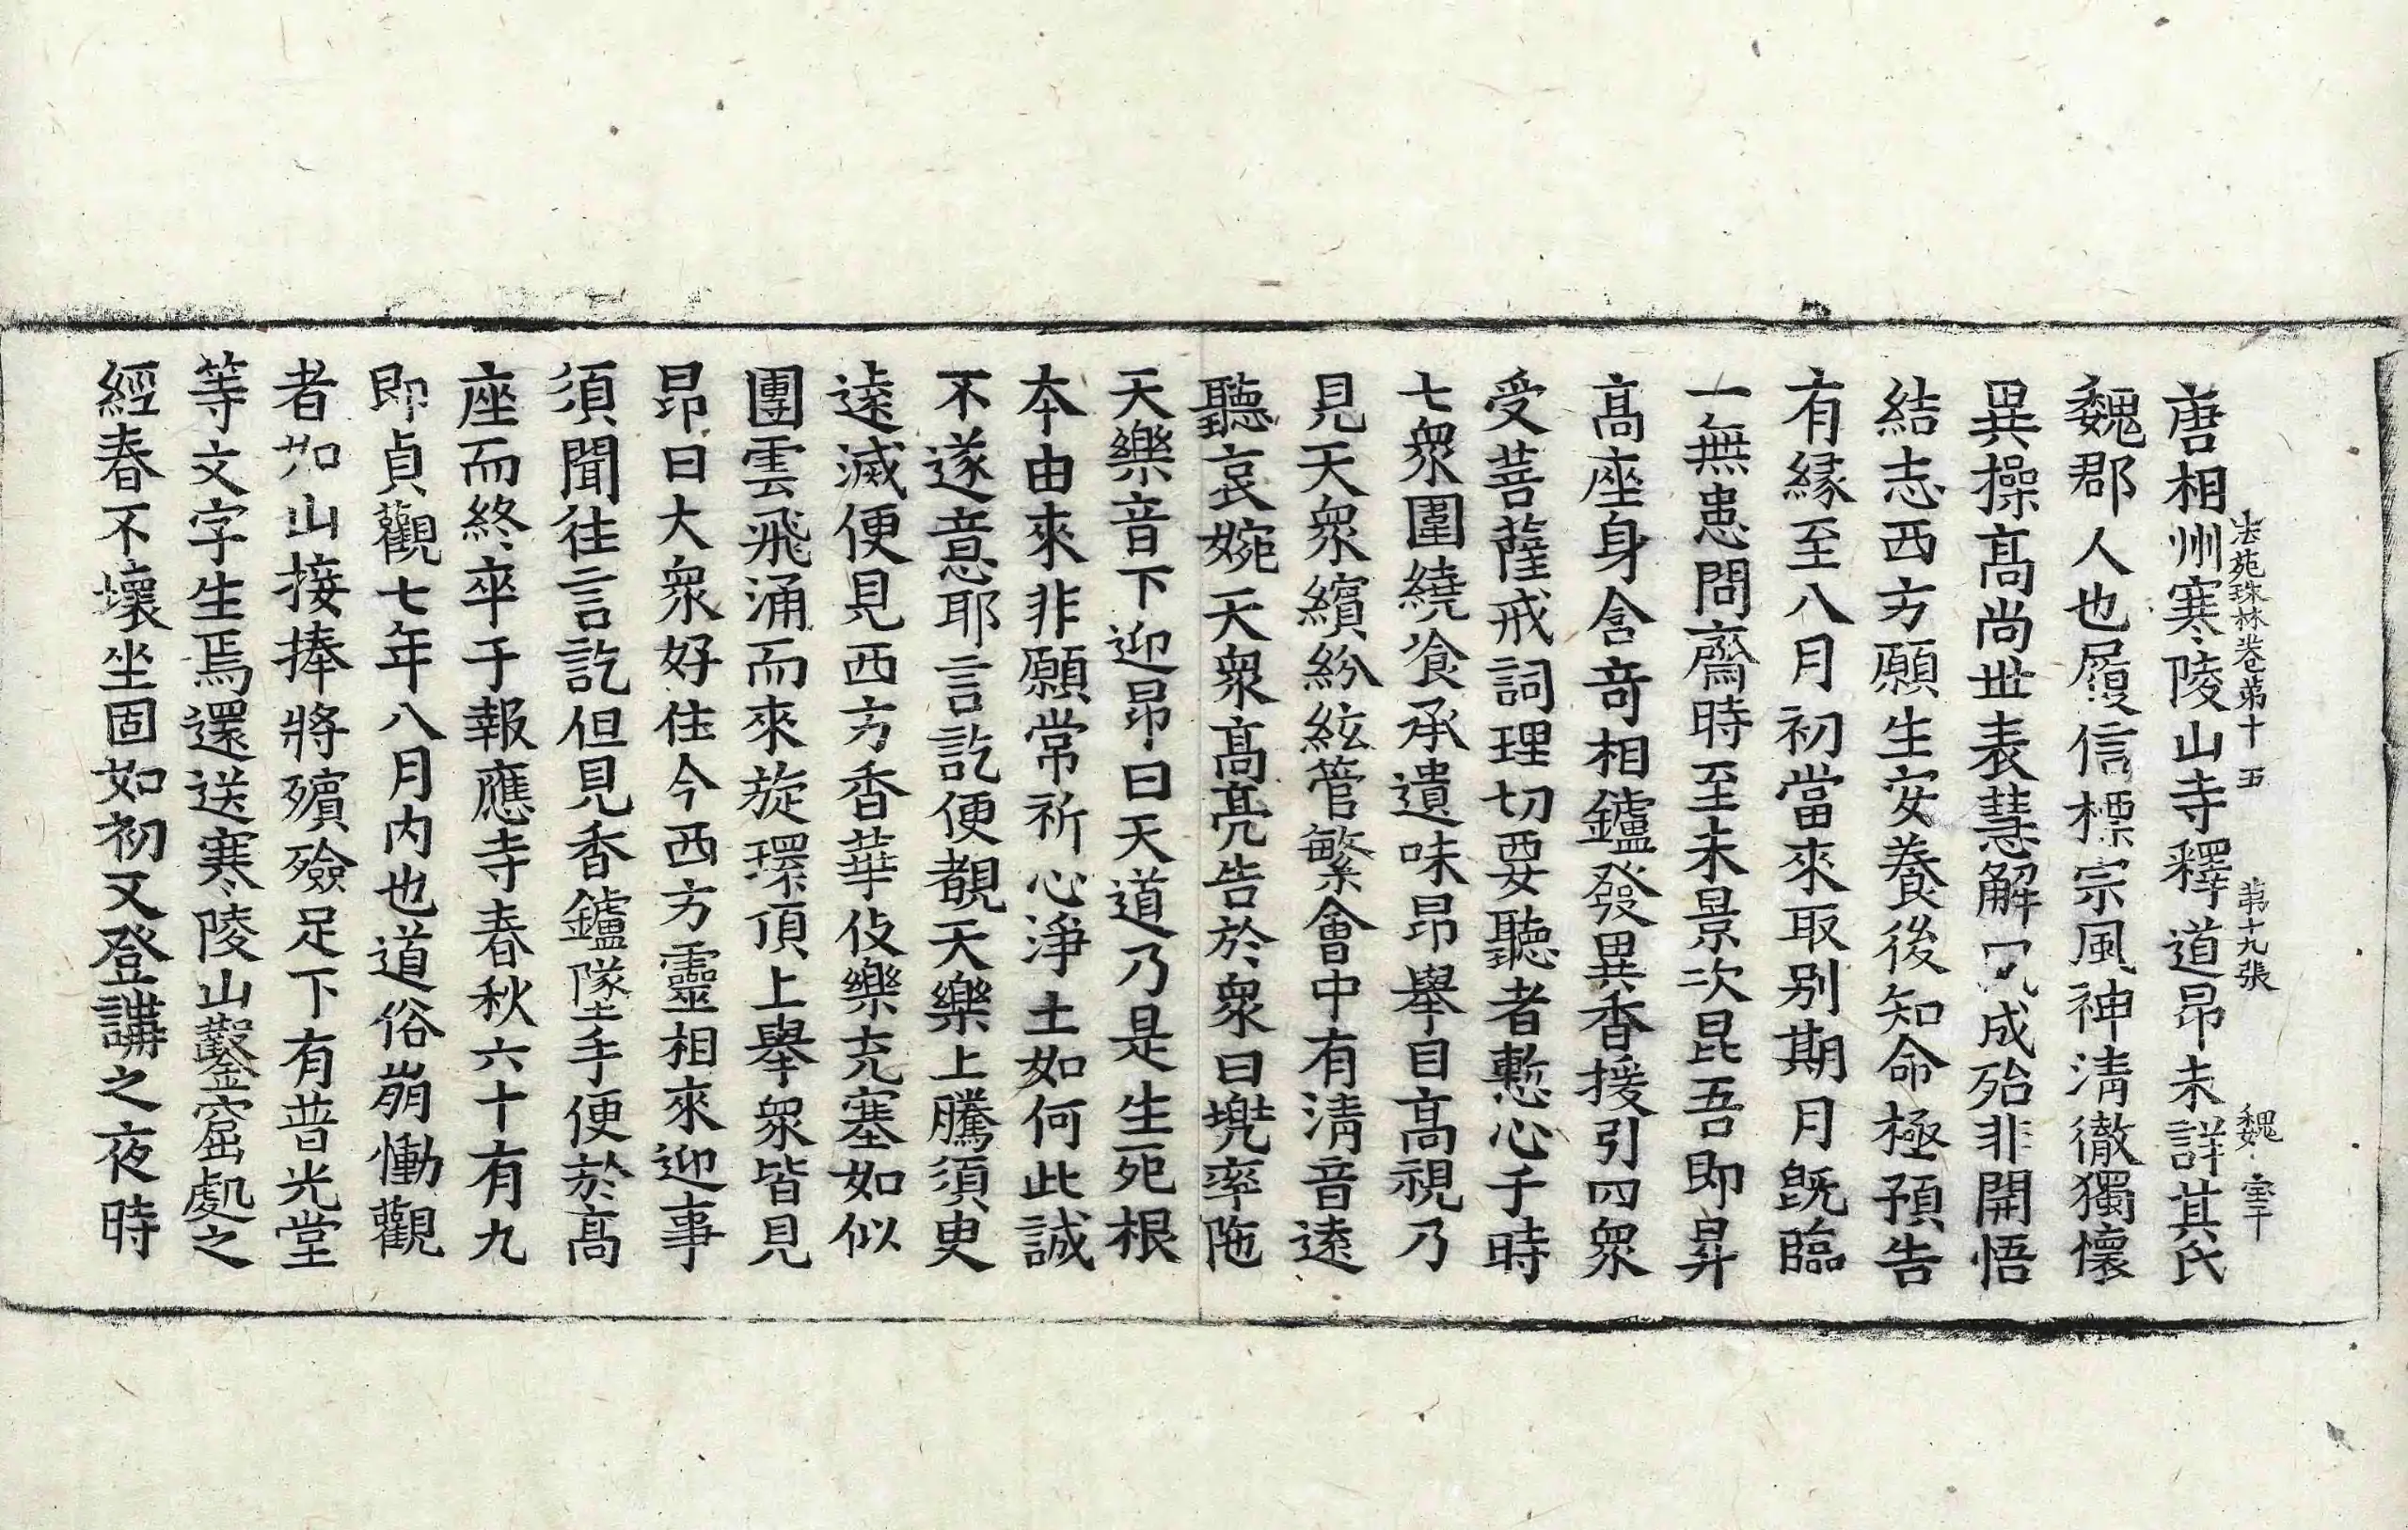 法苑珠林卷第十五 第十九張 魏 宝干
唐相州寒陵山寺釋道昂未詳其氏
魏郡人也履信標宗風神清徹獨懷
異操髙尚世表慧解夙成殆非開悟
結志西方願生安養後知命極預告
有緣至八月初當來取别期月旣臨
一無患問齋時至未景次昆吾即昇
髙座身含竒相鑪發異香援引四衆
受菩薩戒詞理切要聽者慙心于時
七衆圍繞飡承遺味昂舉目髙視乃
見天衆繽紛絃管繁會中有清音逺
聽哀婉天衆髙亮告於衆曰兠率陁
天樂音下迎昂曰天道乃是生死根
本由來非願常祈心淨土如何此誠
不遂意耶言訖便覩天樂上騰須臾
逺滅便見西方香華伎樂充塞如似
團雲飛涌而來旋環頂上舉衆皆見
昂曰大衆好住今西方靈相來迎事
須聞往言訖但見香鑪墜手便於髙
座而終卒于報應寺春秋六十有九
即貞觀七年八月内也道俗崩慟觀
者如山接捧將殯殮足下有普光堂
等文字生焉還送寒陵山鑿窟處之
經春不壞坐固如初又登講之夜時